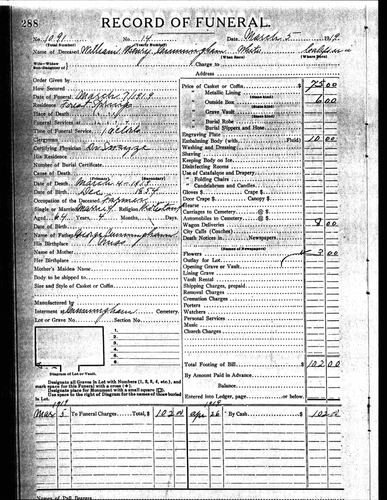 288
RECORD OF FUNERAL.
No. 1091 No. 14 Date March 5 1919
(Total Number) (Yearly Number)
Name of Deceased William Henry Cunningham White
(When Born) (Where Born)
Charge to
Address
Order Given by
How Secured
Date of Funeral March 7, 1919
Residence Forest
Place of Death
Funeral Services at
Time of Funeral Service
Clergyman
Certifying Physician Dr
His Residence
Number of Burial Certificate
Cause of Death
(Primary) (Secondary)
Date of Death March 4
Date of Birth Dec. 1854
Occupation of the Deceased Farmer
Single or Married Religion
Aged 64 Years, 4 Months, Days
Date of Birth
Name of Father George Cunningham
His Birthplace
Name of Mother
Her Birthplace
Mother's Maiden Name
Body to be shipped to
Size and Style of Casket or Coffin
Manufactured by
Interment at Cunningham Cemetery.
Lot or Grave No. Section No.
1.
2.
3.
4.
5.
6.
Diagram of Lot or Vault.
Designate all Graves in Lot with Numbers (1, 2, 3, 4, etc.), and
mark space for this Funeral with a cross (+).
Designate place for Monument with a small square (□).
Use space to the right of Diagram for the names of those buried
in Lot.
Price of Casket or Coffin $ 75 00
" Metallic Lining
" Outside Box 6 00
" Grave Vault
" Burial Robe
" Burial Slippers and Hose
Engraving Plate
Embalming Body (with Fluid) 10 00
Washing and Dressing
Shaving
Keeping Body on Ice
Disinfecting Rooms
Use of Catafalque and Drapery
" Folding Chairs
" Candelabrum and Candles
Gloves $ Crape $
Door Crape $ Canopy $
Hearse
Carriages to Cemetery @ $
Automobiles to Cemetery @ $
Wagon Deliveries 8 00
City Calls (Coaches)
Death Notices in Newspapers
(Names of Newspapers)
Flowers 3 00
Outlay for Lot
Opening Grave or Vault
Lining Grave
Vault Rental
Shipping Charges, prepaid
Removal Charges
Cremation Charges
Porters
Watchers
Personal Services
Music
Church Charges
Total Footing of Bill $ 102 00
By Amount Paid in Advance
Balance
Entered into Ledger, page or below.
1919 1919
Mar 5 To Funeral Charges Total, $ 102 00 Apr 26 By Cash $ 102 00
Names of Pall Bearers